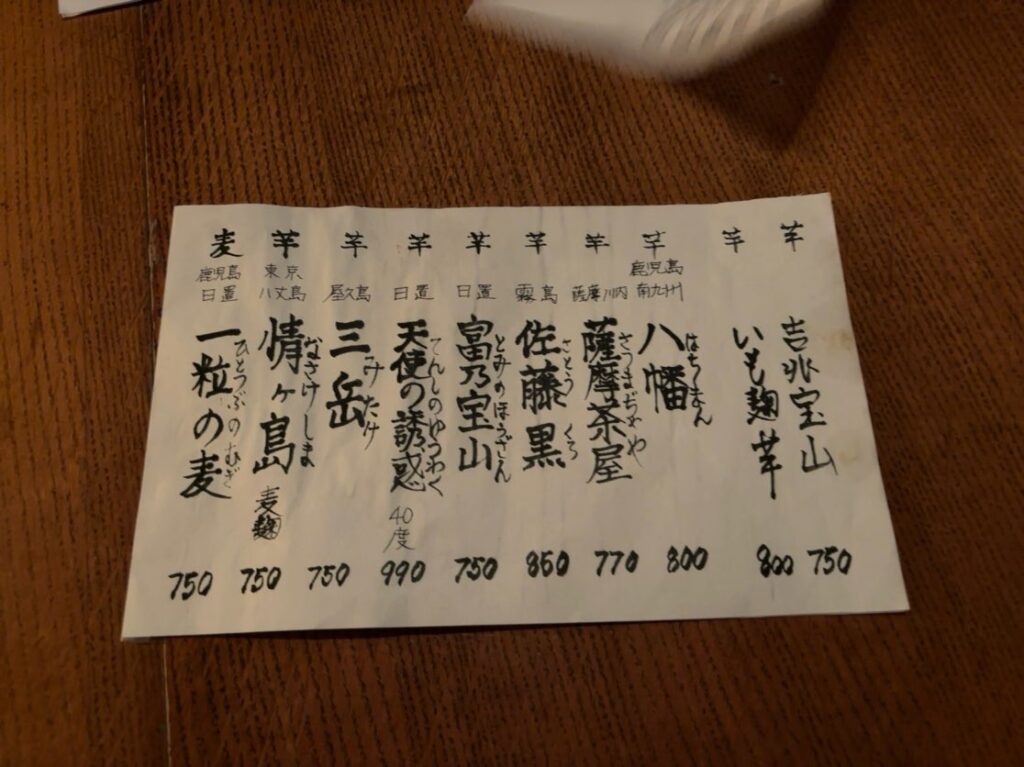 芋
吉兆宝山
750
芋
いも麹芋
800
芋
鹿児島
南九州
八幡
はちまん
800
芋
薩摩川内
薩摩茶屋
さつまぢゃや
770
芋
霧島
佐藤黒
さとう くろ
850
芋
日置
富乃宝山
とみのほうざん
750
芋
日置
天使の誘惑
てんしのゆうわく
40度
990
芋
屋久島
三岳
みたけ
750
芋
東京
八丈島
情ヶ島
なさけしま
麦麹
750
麦
鹿児島
日置
一粒の麦
ひとつぶのむぎ
750